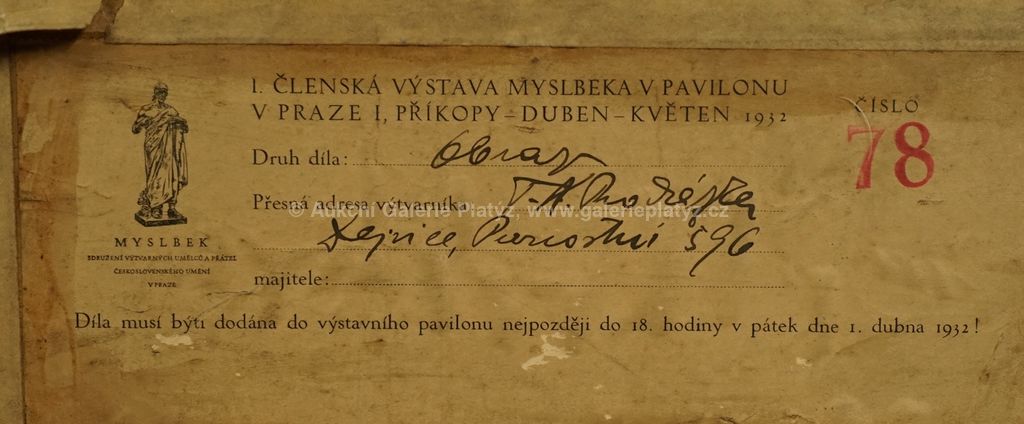 I. ČLENSKÁ VÝSTAVA MYSLBEKA V PAVILONU
V PRAZE I, PŘÍKOPY – DUBEN – KVĚTEN 1932
ČÍSLO
78
Druh díla: Obraz
Přesná adresa výtvarníka
© Aukční Galerie Platýz, www.galerieplatyz.cz
Dejvice, 596
majitele:
MYSLBEK
SDRUŽENÍ VÝTVARNÝCH UMĚLCŮ A PŘÁTEL
ČESKOSLOVENSKÉHO UMĚNÍ
V PRAZE
Díla musí býti dodána do výstavního pavilonu nejpozději do 18. hodiny v pátek dne 1. dubna 1932!